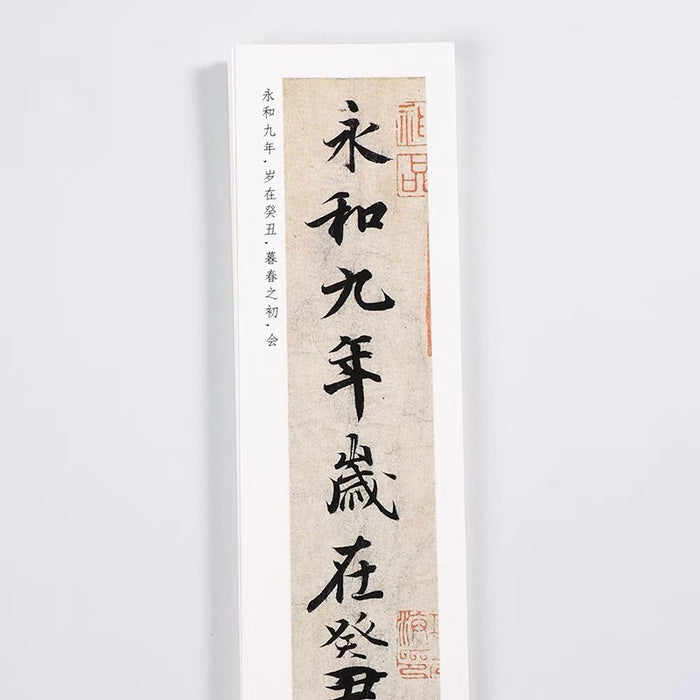 永和九年歲在癸丑
永和九年，岁在癸丑，暮春之初，会